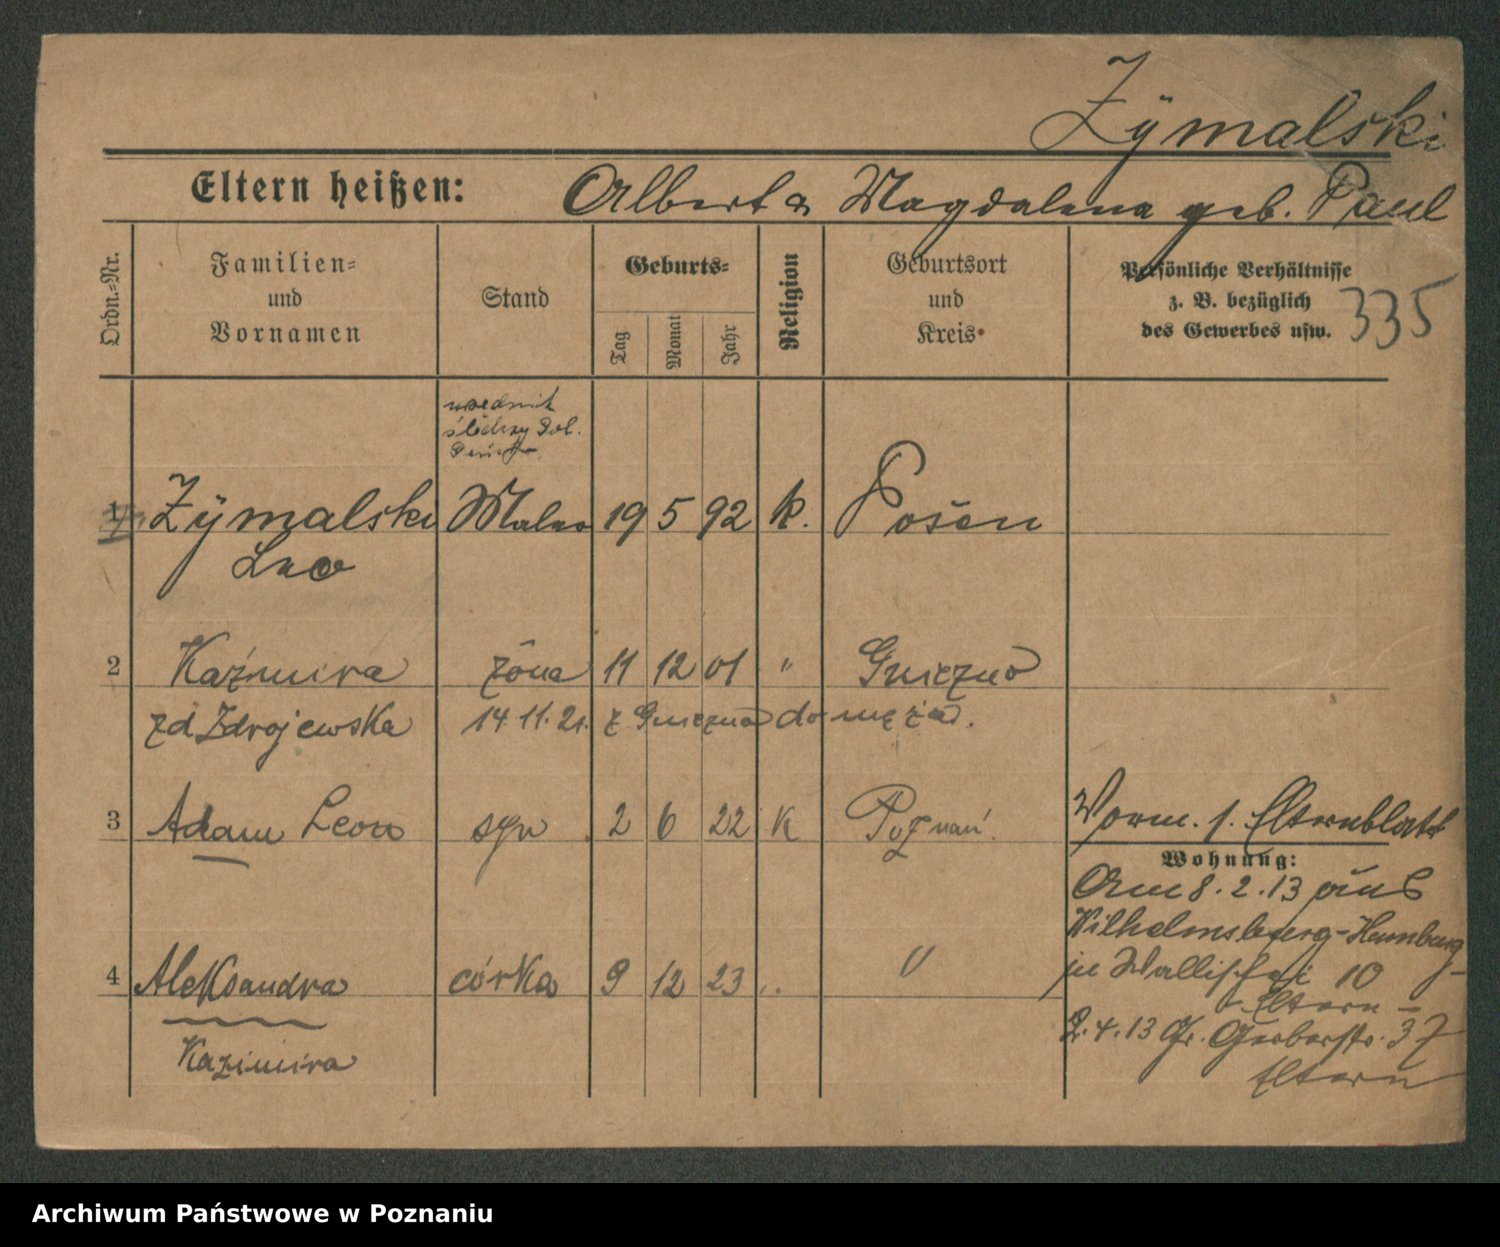 Zÿmalski
Eltern heißen: Albert & Magdalena geb. Paul
Ordn.-Nr.
Familien-
und
Vornamen
Stand
Geburts-
Tag
Monat
Jahr
Religion
Geburtsort
und
Kreis
Persönliche Verhältnisse
z. B. bezüglich
des Gewerbes usw.
335
urzednik
śledczy Pol.
1 Zÿmalski Maler 19 5 92 k. Posen
Leo
2 Kaźmira żona 11 12 01 " Gniezno
zd Zdrojewska 14.11.21. z Gniezna do męża.
3 Adam Leon syn 2 6 22 K Poznań.
Vorm. s. Elternblatt
Wohnung:
Am 8.2.13 aus
Wilhelmsburg-Hamburg
in Wallischei 10
Eltern -
4 Aleksandra córka 9 12 23 " "
Kazimira
2.4.13 Gr. Gerberstr. 37
Eltern
Archiwum Państwowe w Poznaniu